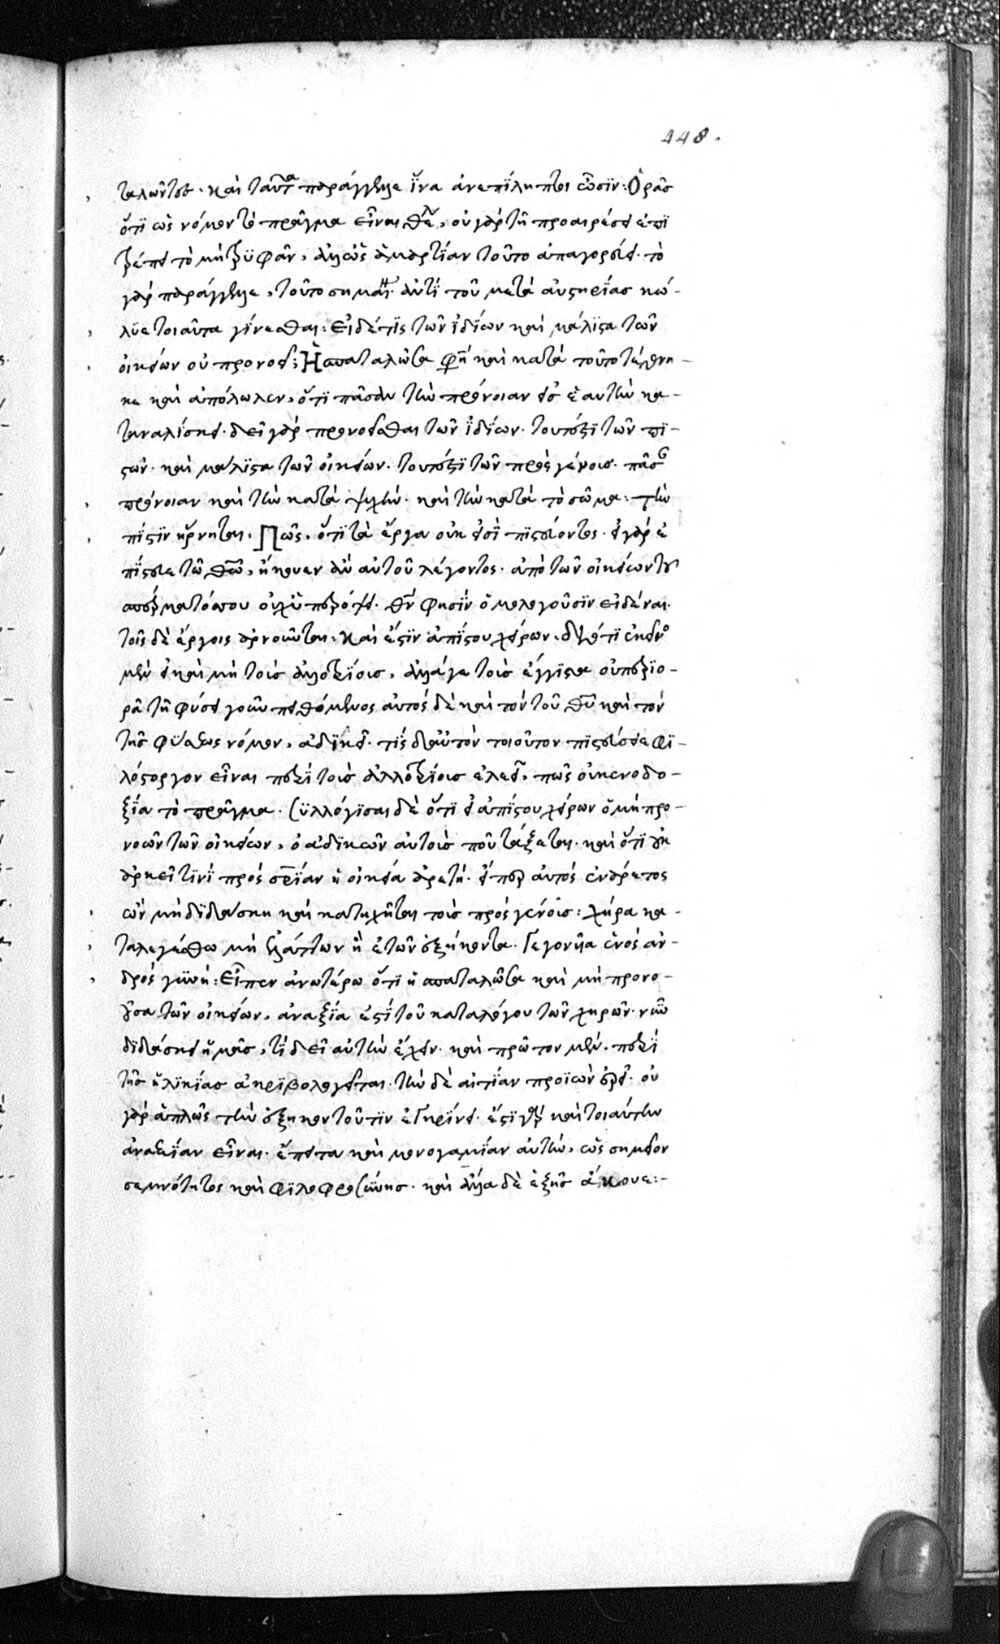 448.
ταλῶντος. καὶ ταῦτα παράγγελλε ἵνα ἀνεπίληπτοι ὦσϊν: Ὁρᾶς
ὅτϊ ὡς νόμον τὸ πρᾶγμα εἶναι θέλει, οὐ γὰρ τῆ προαιρέσει ἐπϊ
τρέπει τὸ μὴ τρϋφᾶν, ἀλλ' ὡς ἁμαρτίαν τοῦτο ἀπαγορεύει. τὸ
γὰρ παράγγελλε, τοῦτο σημαίνει ἀντὶ τοῦ μετὰ αὐστηρίας κώ-
λϋε τοιαῦτα γίνεσθαι: Εἰ δέ τϊς τῶν ἰδίων καὶ μάλϊστα τῶν
οἰκείων οὐ προνοεῖ: Ἡ σπαταλῶσα φησὶ καὶ κατὰ τοῦτο τέθνη-
κε καὶ ἀπόλωλεν, ὅτϊ πᾶσαν τὴν πρόνοιαν εἰς ἑαυτὴν κα-
ταναλίσκει. δεῖ γὰρ προνοεῖσθαι τῶν ἰδίων. τουτέστϊ τῶν πϊ-
στῶν. καὶ μάλϊστα τῶν οἰκείων. τουτέστϊ τῶν πρὸς γένους. πᾶσαν
πρόνοιαν καὶ τὴν κατὰ ψυχὴν. καὶ τὴν κατὰ τὸ σῶμα: τὴν
πίστϊν ἤρνηται. Πῶς, ὅτϊ τὰ ἔργα οὐκ εἰσὶ πϊστεύοντος. εἰ γὰρ ἐ
πίστευε τῶ θεῶ, ἤκουεν ἂν αὐτοῦ λέγοντος. ἀπὸ τῶν οἰκείων τοῦ
σπέρματός σου οὐχ ὑπερόψει. θεὸν φησὶν ὁμολογοῦσϊν εἰδέναι.
τοῖς δὲ ἔργοις ἀρνοῦνται. καὶ ἔστϊν ἀπίστου χείρων. διότϊ ἐκεῖνος
μὲν εἰ καὶ μὴ τοὺς ἀλλοτρίους, ἀλλά γε τοὺς ἔγγϊστα οὐ περϊο-
ρᾶ τῆ φύσει γοῦν πειθόμενος αὐτὸς δὲ καὶ τὸν τοῦ θεοῦ καὶ τὸν
τῆς φϋσεως νόμον, ἀδϊκεῖ. τίς δὲ αὐτὸν τοιοῦτον πϊστεύσειε φϊ-
λόστοργον εἶναι περὶ τοὺς ἀλλοτρίους ἐλεεῖν, πῶς οὐ κενοδο-
ξία τὸ πρᾶγμα. Συλλόγϊσαι δὲ ὅτϊ εἰ ἀπίστου χείρων ὁ μὴ προ-
νοῶν τῶν οἰκείων, ὁ ἀδϊκῶν αὐτοὺς ποῦ τάξεται. καὶ ὅτϊ οὐκ
ἀρκεῖ τϊνὶ πρὸς σωτηρίαν ἡ οἰκεία ἀρετή. εἴπερ αὐτὸς ἐνάρετος
ὢν μὴ δϊδάσκη καὶ κατηχῆται τοὺς πρὸς γένους: χήρα κα-
ταλεγέσθω μὴ ἔλαττον ἢ ἐτῶν ἑξήκοντα. Γεγονυῖα ἑνὸς ἀν-
δρὸς γυνή: Εἶπεν ἀνωτέρω ὅτϊ ἡ σπαταλῶσα καὶ μὴ προνο-
οῦσα τῶν οἰκείων, ἀναξία ἐστὶ τοῦ καταλόγου τῶν χηρῶν. νῦν
δϊδάσκει ἡμᾶς, τί δεῖ αὐτὴν ἔχειν. καὶ πρῶτον μὲν. περὶ
τῆς ἡλϊκίας ἀκρϊβολογεῖται. τὴν δὲ αἰτίαν προϊὼν ἐρεῖ. οὐ
γὰρ ἁπλῶς τὴν ἑξηκοντοῦτϊν ἐγκρίνει. ἔστϊ γὰρ καὶ τοιαύτην
ἀναξίαν εἶναι. ἔπειτα καὶ μονογαμίαν αὐτὴν, ὡς σημεῖον
σεμνότητος καὶ φϊλοφροσύνης. καὶ ἄλλα δὲ ἑξῆς ἄκουε:-